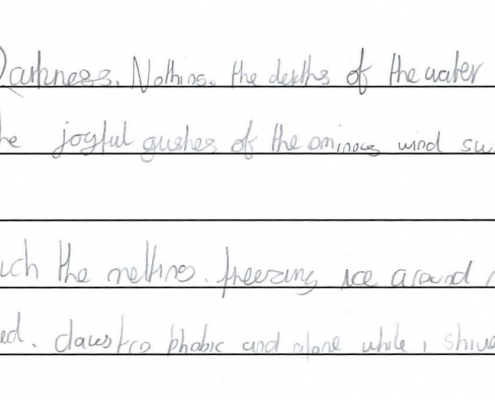 Darkness. Nothing. the depths of the water
he joyful gushes of the ominous wind sw
uch the melting. freezing ice around
ed. claustrophobic and alone while i shive